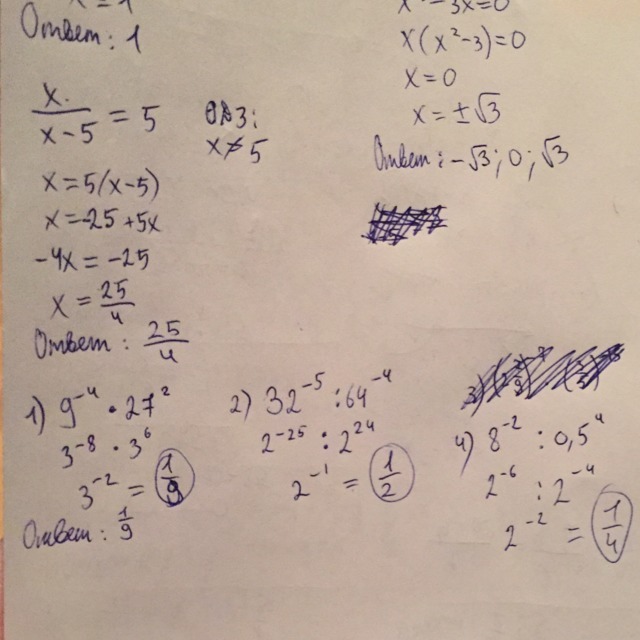 x = 1
Ответ: 1
x/(x-5) = 5 ОДЗ: x ≠ 5
x = 5(x-5)
x = -25 + 5x
-4x = -25
x = 25/4
Ответ: 25/4
-3x=0
x(x²-3)=0
x = 0
x = ±√3
Ответ: -√3; 0; √3
1) 9⁻⁴ · 27²
3⁻⁸ · 3⁶
3⁻² = 1/9
Ответ: 1/9
2) 32⁻⁵ : 64⁻⁴
2⁻²⁵ : 2²⁴
2⁻¹ = 1/2
4) 8⁻² : 0,5⁴
2⁻⁶ : 2⁻⁴
2⁻² = 1/4